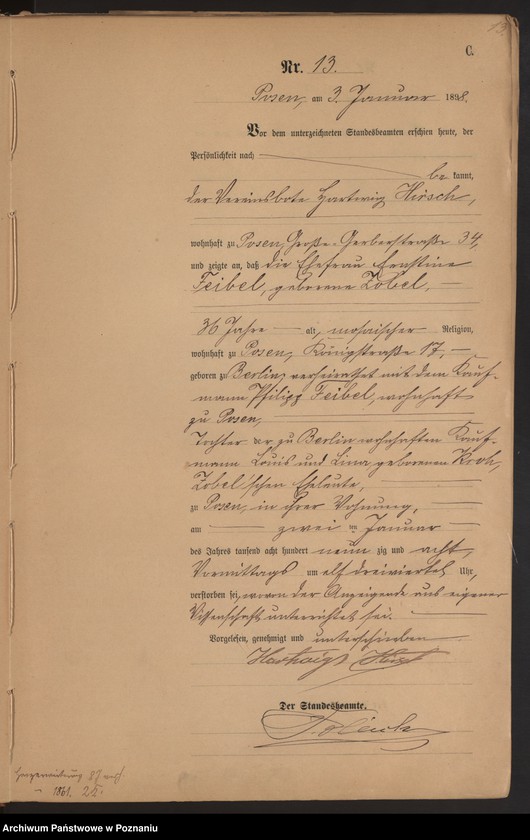 C.
Nr. 13.
Posen, am 3. Januar 1898.
Vor dem unterzeichneten Standesbeamten erschien heute, der
Persönlichkeit nach
be kannt,
der Vereinsbote Hartwig Hirsch,
wohnhaft zu Posen, Große Gerberstraße 34,
und zeigte an, daß die Ehefrau Ernstine
Feibel, geborene Zobel,
36 Jahre alt, mosaischer Religion,
wohnhaft zu Posen, Königstraße 17,
geboren zu Berlin, verheirathet mit dem Kauf-
mann Philipp Feibel, wohnhaft
zu Posen,
Tochter der zu Berlin wohnhaften Kauf-
mann Louis und Lina geborenen Kroh,
Zobel'schen Eheleute,
zu Posen, in ihrer Wohnung,
am zwei ten Januar
des Jahres tausend acht hundert neun zig und acht
Vormittags um elf dreiviertel Uhr,
verstorben sei, wovon der Anzeigende aus eigener
Wissenschaft unterrichtet sei.
Vorgelesen, genehmigt und unterschrieben
Hartwig Hirsch
Der Standesbeamte.
1861.
Archiwum Państwowe w Poznaniu